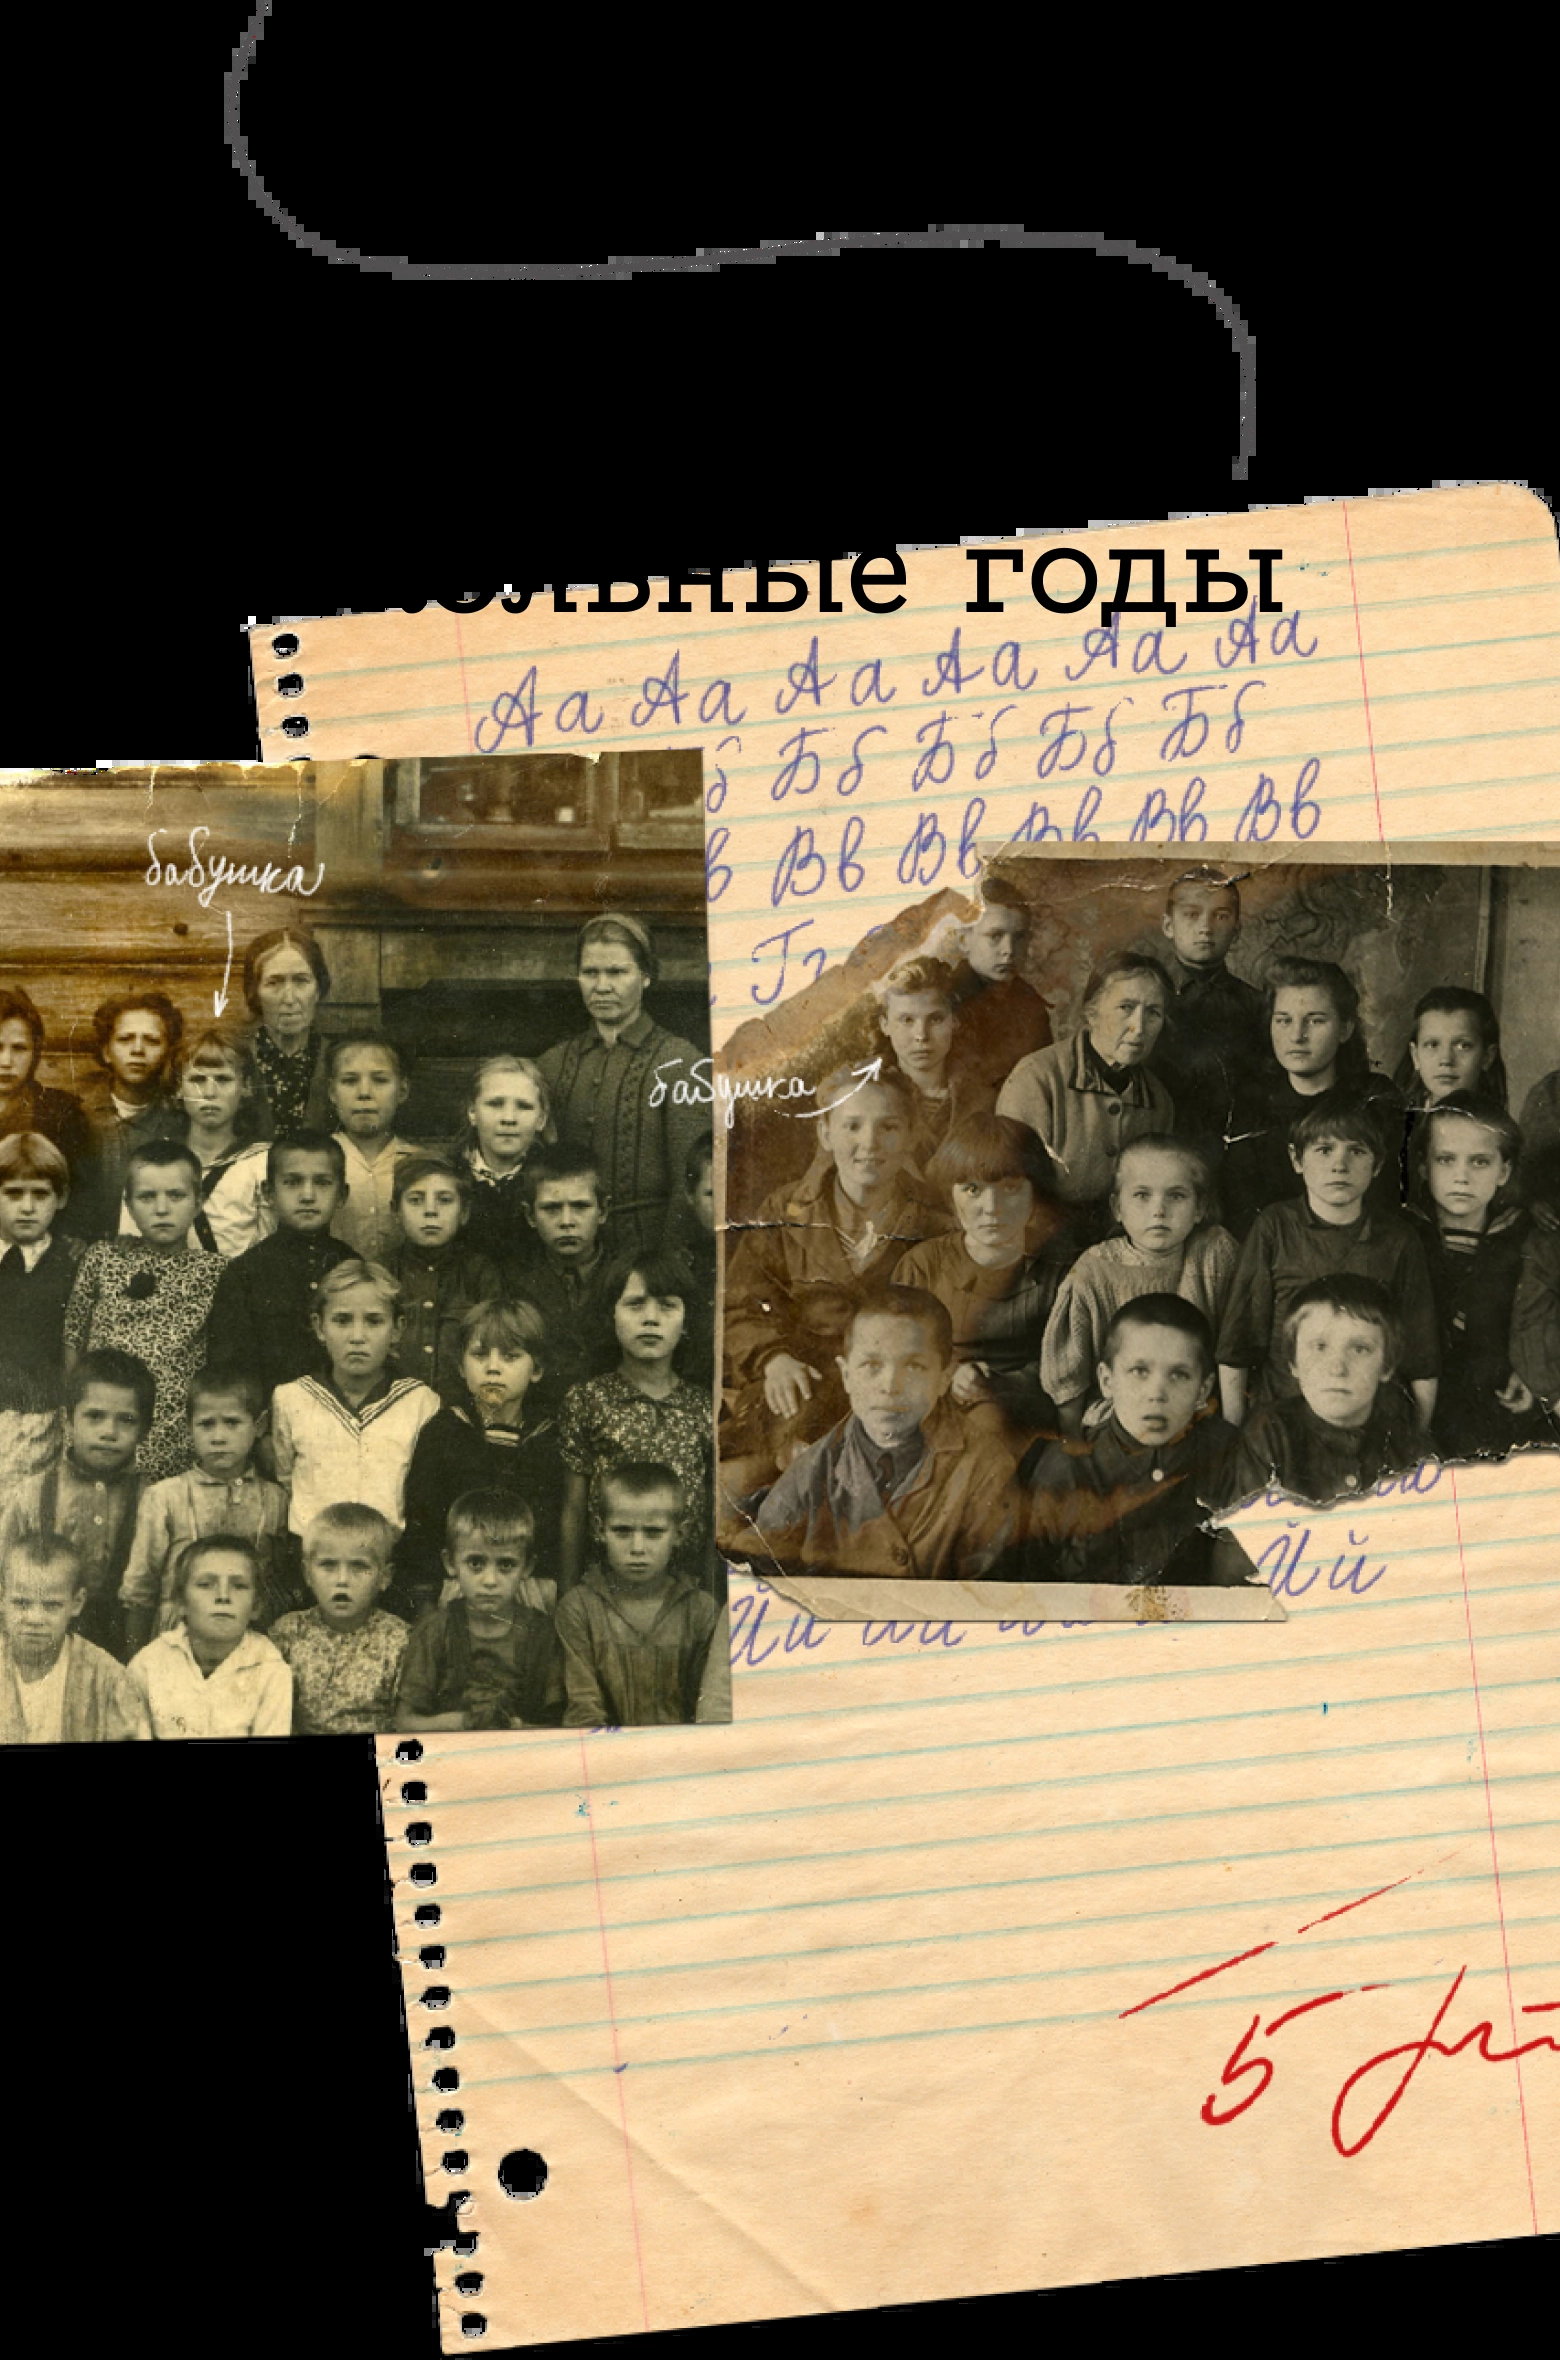 ольные годы
Аа Аа Аа Аа Аа Аа
б Бб Бб Бб Бб
в Вв Вв Вв Вв Вв
Гг
бабушка
бабушка
Ий
Ии Ии
5